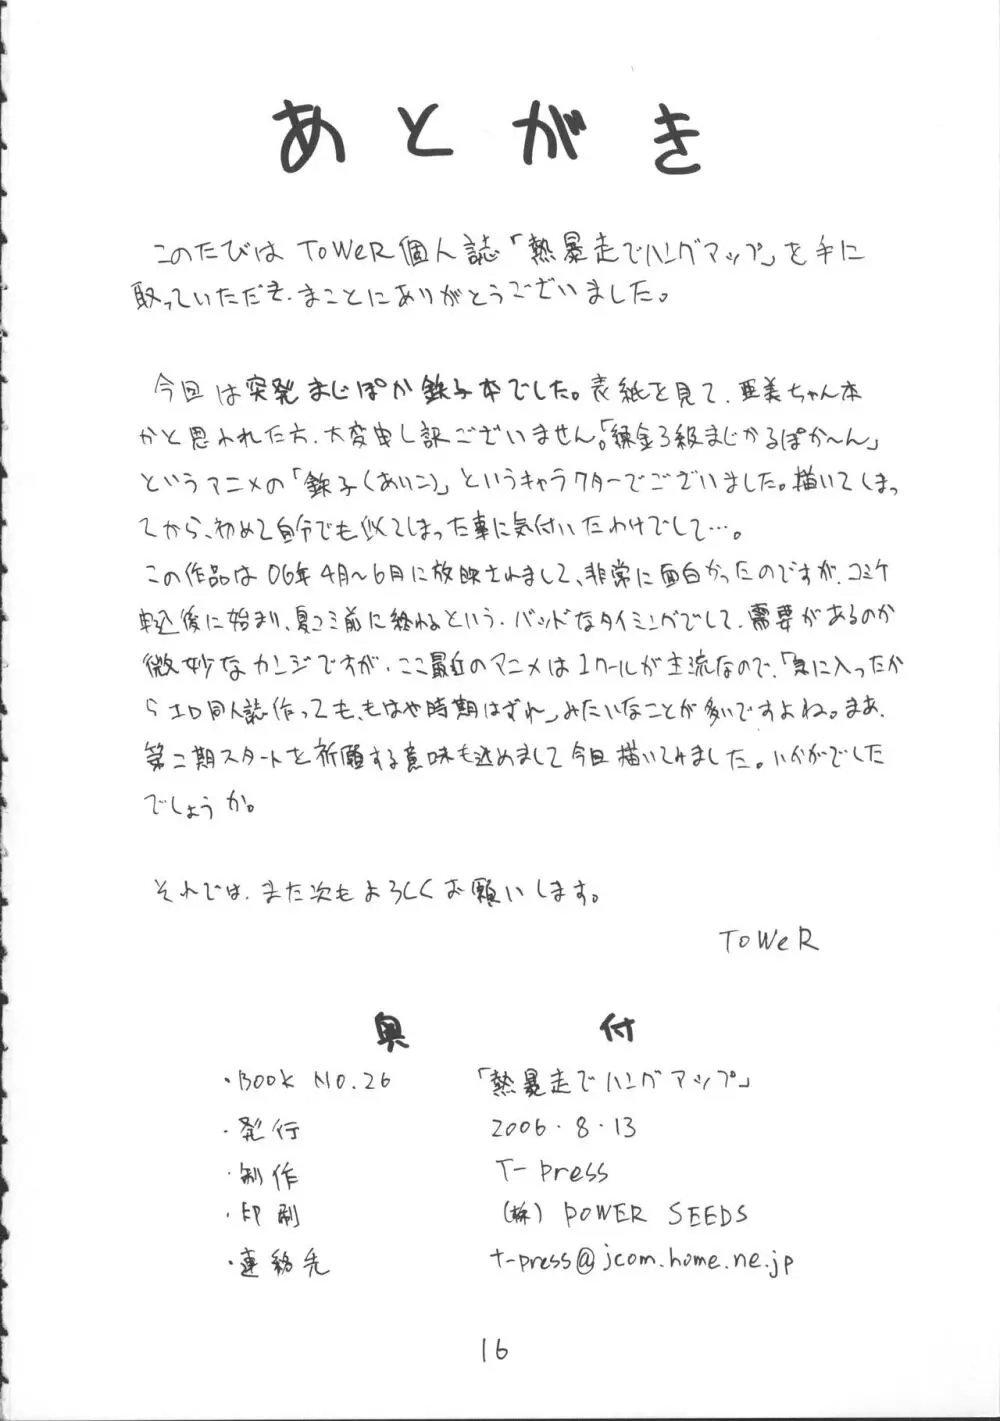 あとがき
このたびは ToWeR個人誌「熱暴走でハングアップ」を手に
取っていただき、まことにありがとうございました。
今回は突発まじぽか鉄子本でした。表紙を見て、亜美ちゃん本
かと思われた方、大変申し訳ございません。「錬金3級まじかるぽか〜ん」
というアニメの「鉄子(あいこ)」というキャラクターでございました。描いてしまっ
てから、初めて自分でも似てしまった事に気付いたわけでして…。
この作品は06年4月〜6月に放映されまして、非常に面白かったのですが、コミケ
申込後に始まり、夏コミ前に終わるという、バッドなタイミングでして、需要があるのか
微妙なカンジですが、ここ最近のアニメは1クールが主流なので、「気に入ったか
らエロ同人誌作っても、もはや時期はずれ」みたいなことが多いですよね。まあ、
第二期スタートを祈願する意味も込めまして今回描いてみました。いかがでした
でしょうか。
それでは、また次もよろしくお願いします。
ToWeR
奥 付
・BOOK NO.26 「熱暴走でハングアップ」
・発行 2006・8・13
・制作 T-press
・印刷 (株) POWER SEEDS
・連絡先 t-press@jcom.home.ne.jp
16